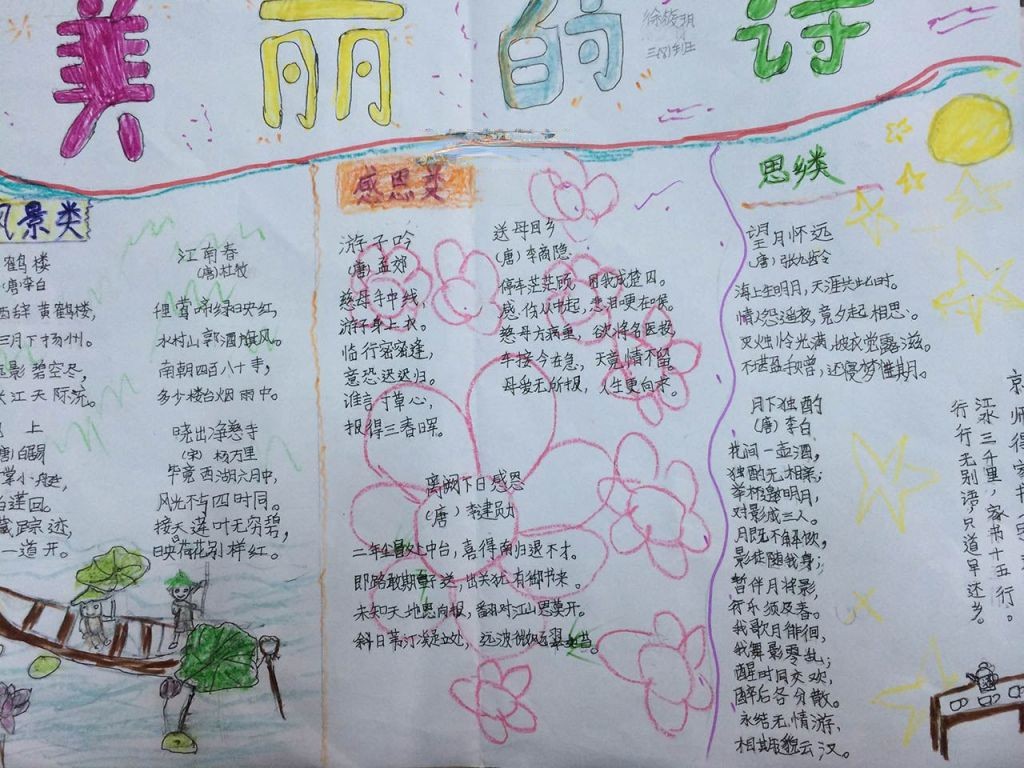 美丽的诗
三(8)班
风景类
鹤楼
唐 李白
西辞黄鹤楼,
三月下扬州。
影碧空尽,
长江天际流。
上
唐 白居易
小艇,
白莲回。
藏踪迹,
一道开。
江南春
(唐)杜牧
里莺啼绿映红,
水村山郭酒旗风。
南朝四百八十寺,
多少楼台烟雨中。
晓出净慈寺
(宋)杨万里
毕竟西湖六月中,
风光不与四时同。
接天莲叶无穷碧,
映荷花别样红。
感恩类
游子吟
(唐)孟郊
慈母手中线,
游子身上衣。
临行密密逢,
意恐迟迟归。
谁言寸草心,
报得三春晖。
送母回乡
(唐)李商隐
停车茫茫顾,困我成楚囚。
感伤从中起,悲泪哽在喉。
慈母方病重,欲将名医投。
车接今在急,天竟情不留。
母爱无所报,人生更何求。
离阙下日感恩
(唐)李建勋
二年尘冒处中台,喜得南归退不才。
即路敢期重子送,出关犹有御书来。
未知天地恩何报,翻对江山思莫开。
斜日苇汀凝立处,远波微飐翠如苔。
思类
望月怀远
(唐)张九龄
海上生明月,天涯共此时。
情人怨遥夜,竟夕起相思。
灭烛怜光满,披衣觉露滋。
不堪盈手赠,还寝梦佳期。
月下独酌
(唐)李白
花间一壶酒,
独酌无相亲;
举杯邀明月,
对影成三人。
月既不解饮,
影徒随我身;
暂伴月将影,
行乐须及春。
我歌月徘徊,
我舞影零乱;
醒时同交欢,
醉后各分散。
永结无情游,
相期邈云汉。
京师得家书
江水三千里,家书十五行。
行行无别语,只道早还乡。